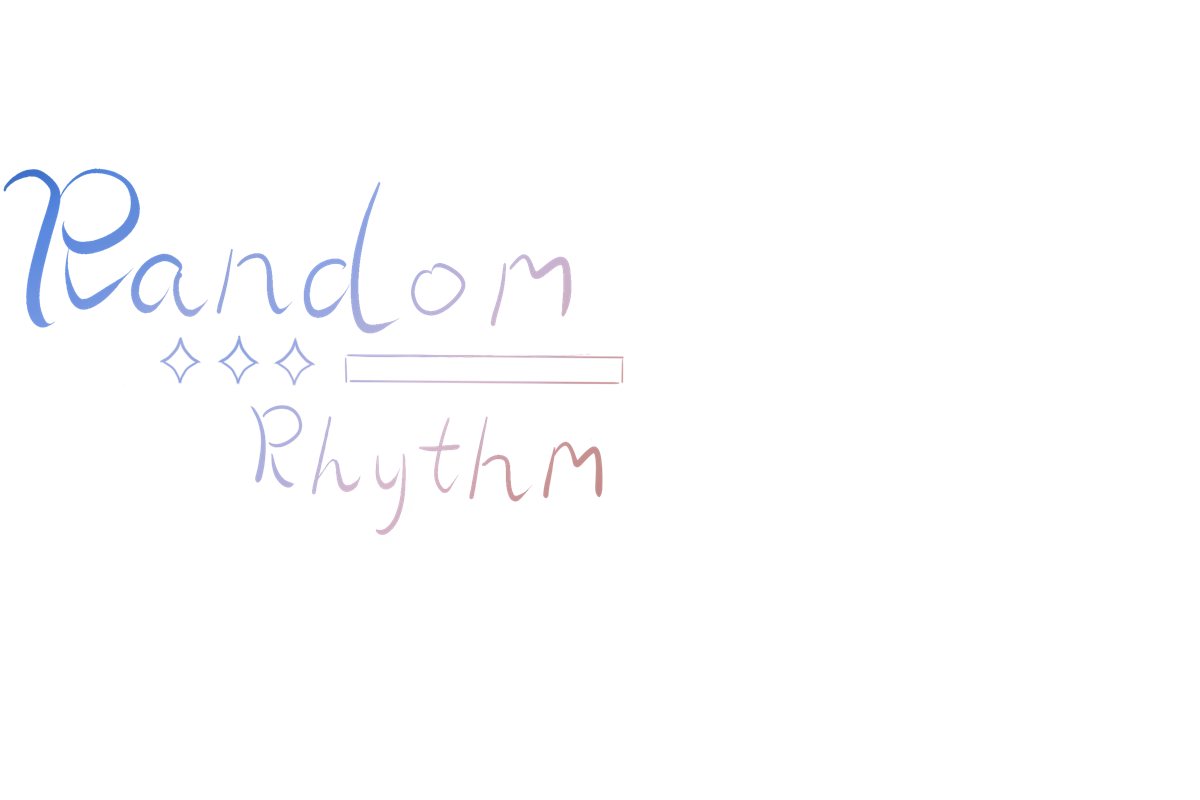 Random
Rhythm